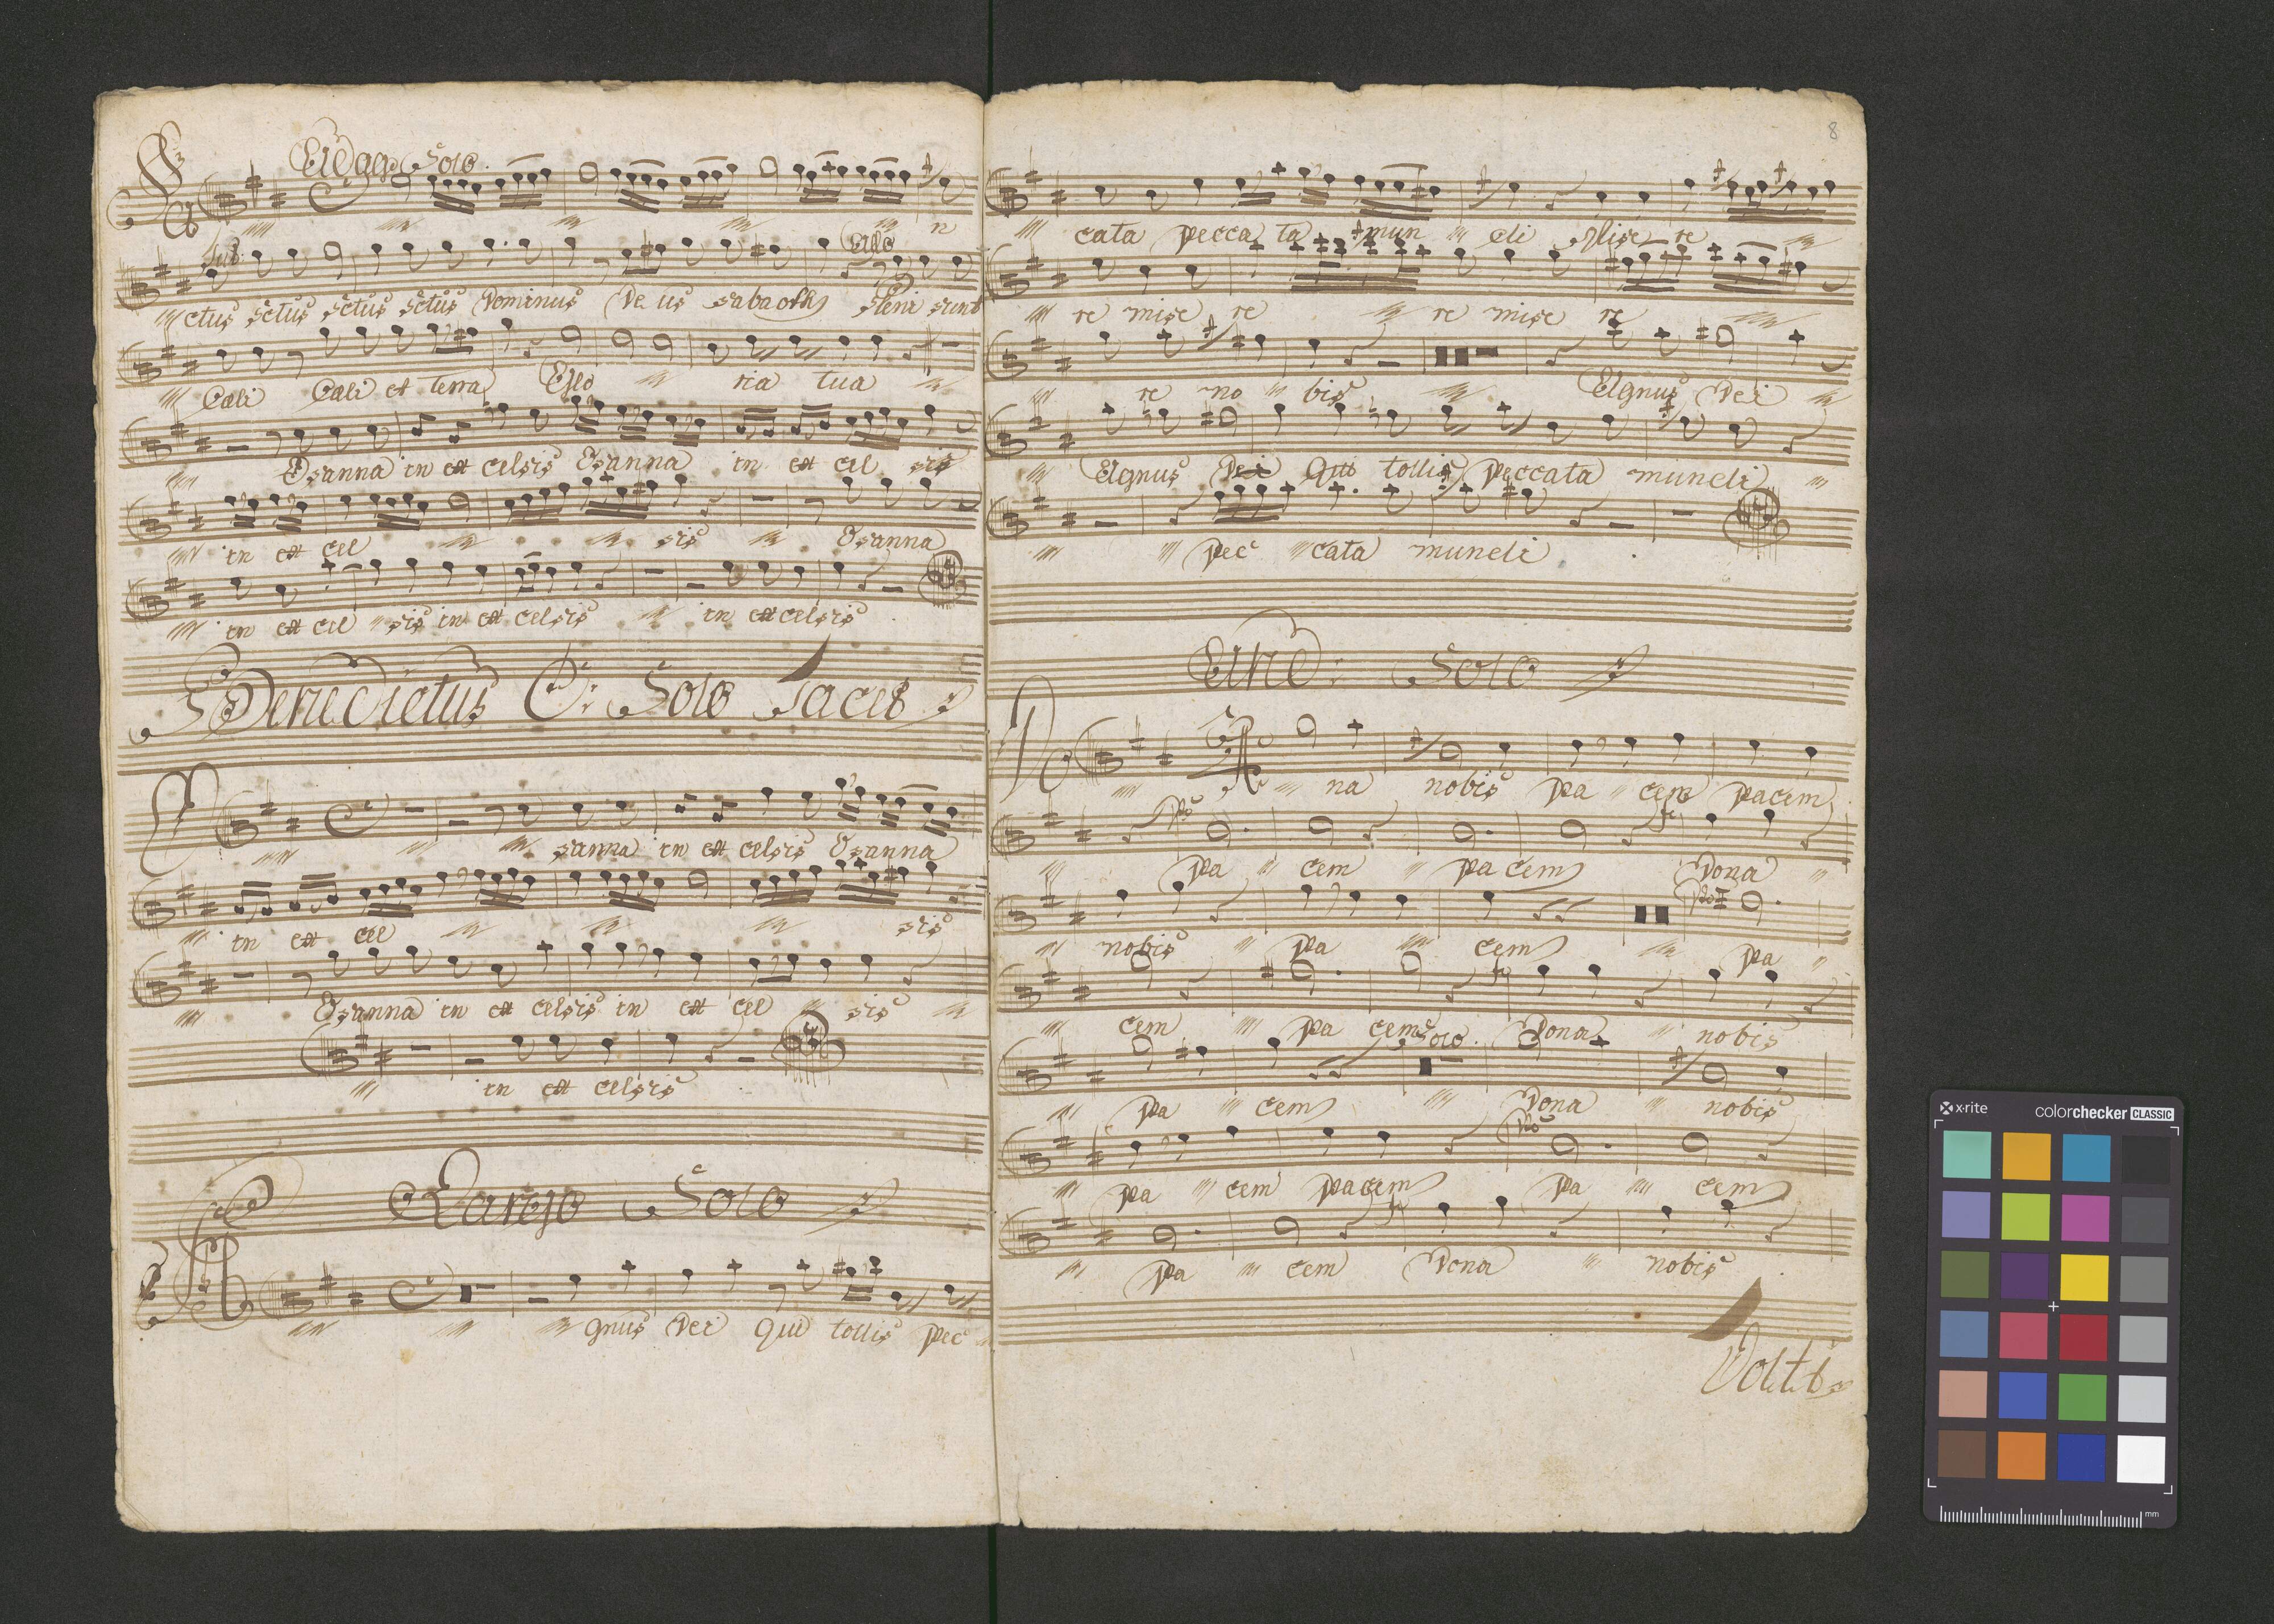 Solo
Sa n
ctus sctus sctus sctus Dominus De us sabaoth pleni sunt
Cæli Cæli et terra Glo ria tua
Osanna in ex celsis Osanna in ex cel sis
in ex cel sis Osanna
in ex cel sis in ex celsis in ex celsis
Benedictus C: Solo Tacet
O sanna in ex celsis Osanna
in ex cel sis
Osanna in ex celsis in ex cel sis
in ex celsis
Largo Solo
A gnus Dei Qui tollis pec
8
cata pecca ta mun di Mise re
re mise re re mise re
re no bis Agnus Dei
Agnus Dei Qui tollis peccata mundi
pec cata mundi
And: Solo
Do na nobis pa cem pacem
pa cem pa cem Dona
nobis pa cem pa
cem pa cem Dona nobis
Solo.
pa cem Dona nobis
pa cem pacem pa cem
pa cem Dona nobis
Volti
x·rite colorchecker CLASSIC
mm